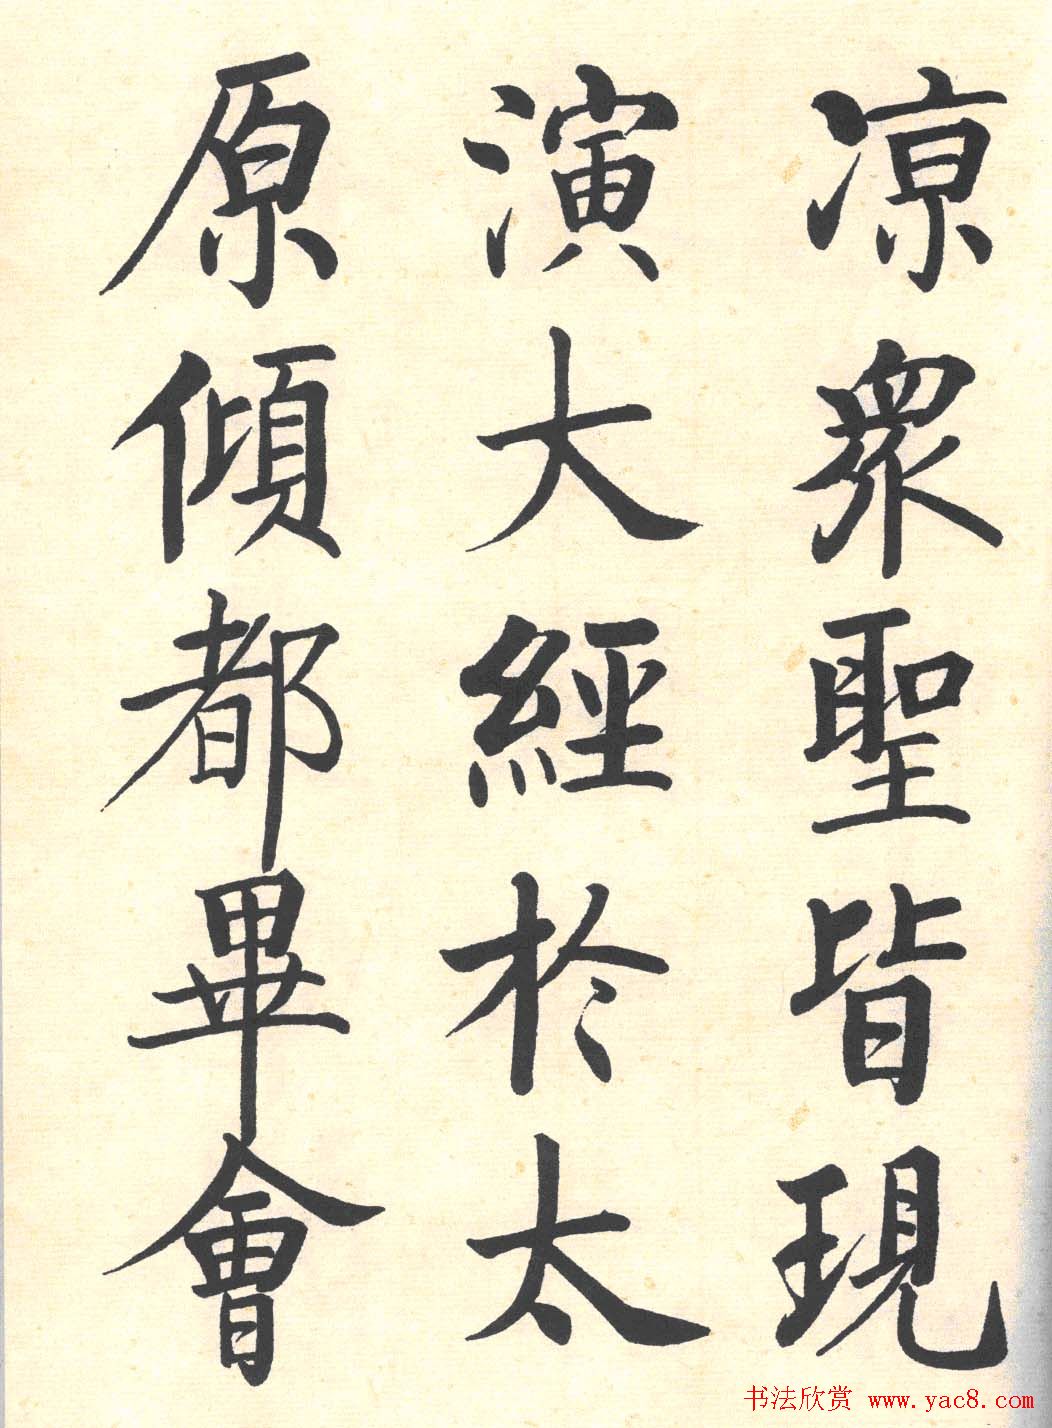 凉衆聖皆現
演大經於太
原傾都畢會
书法欣赏 www.yac8.com